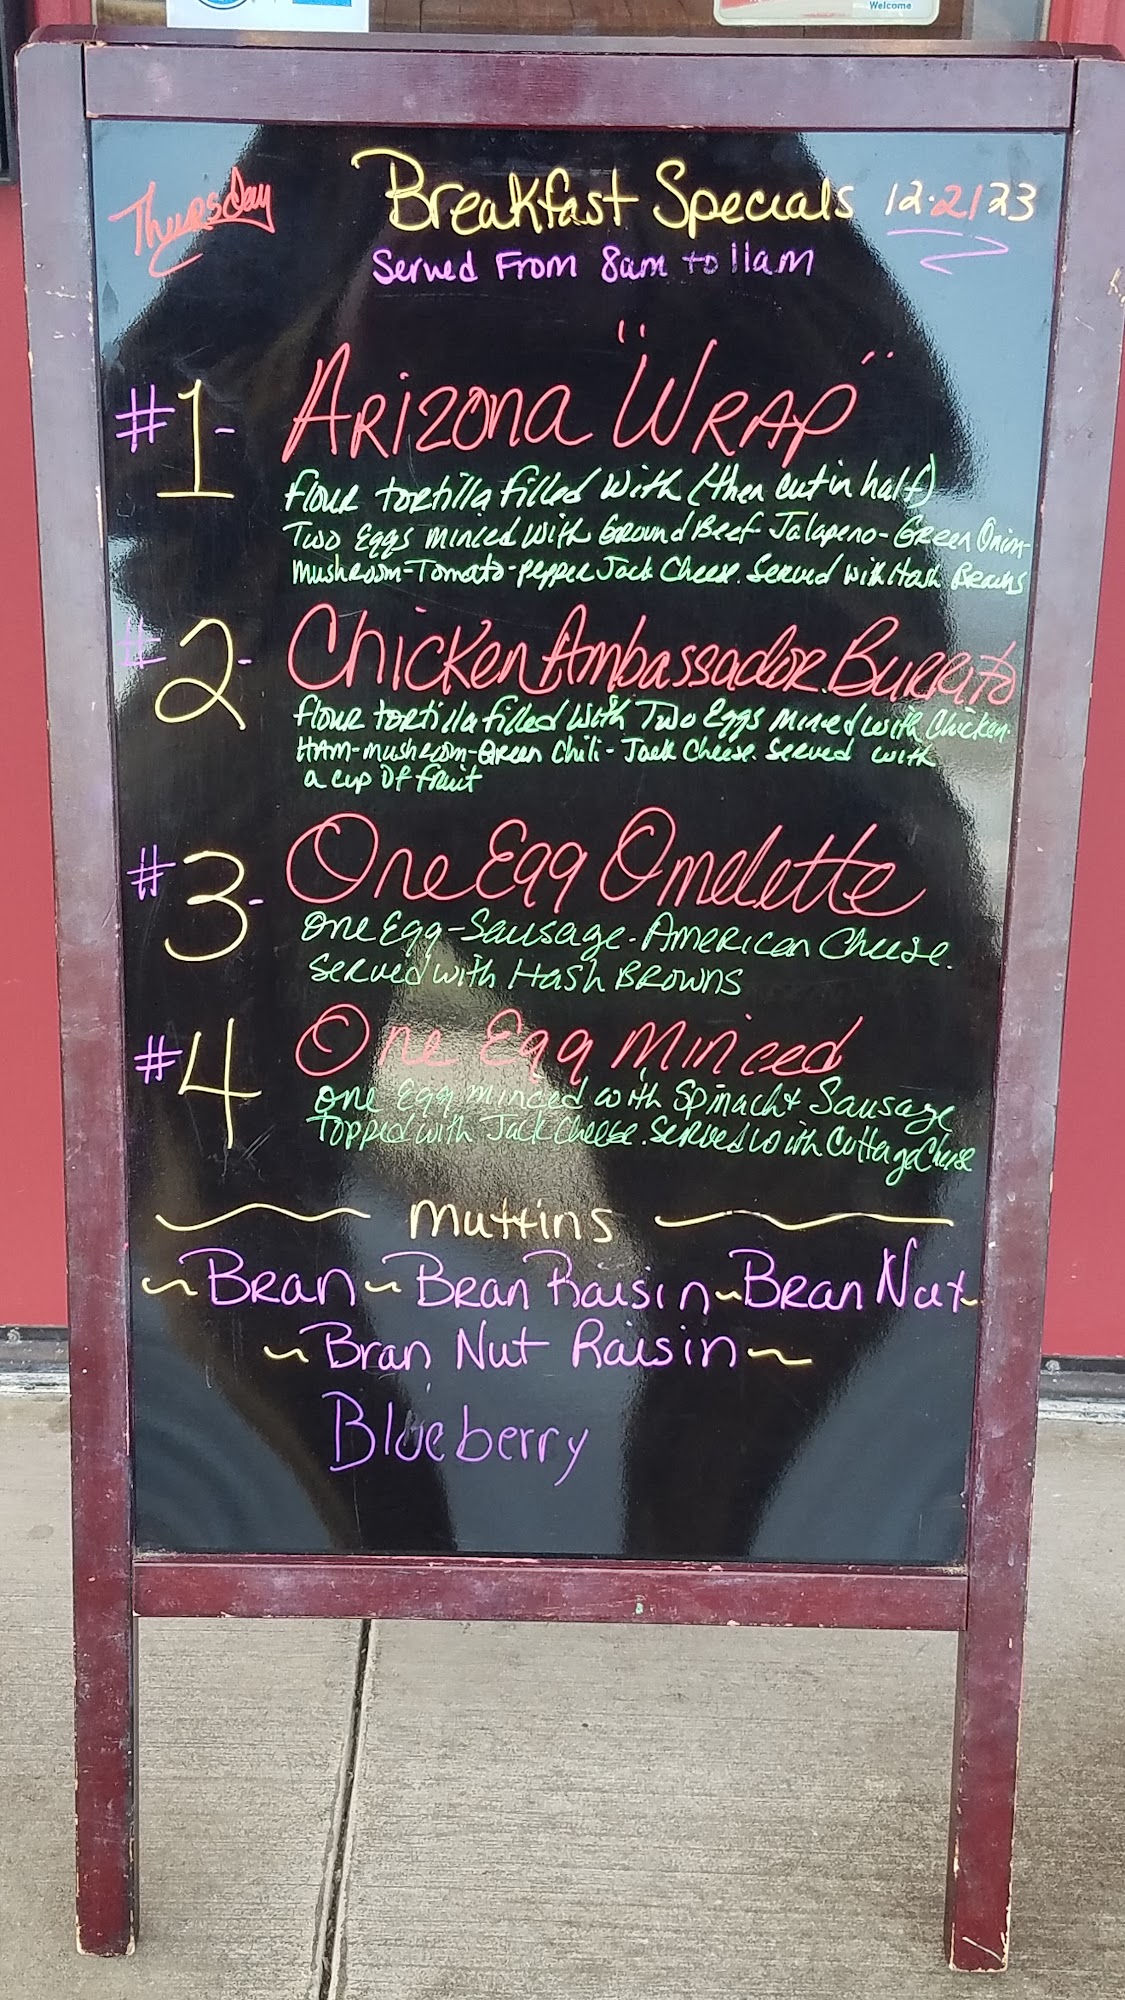 Welcome
Thursday Breakfast Specials 12.21 23
Served From 8am to 11am
#1- Arizona "Wrap"
flour tortilla filled with (then cut in half)
Two Eggs minced with Ground Beef Jalapeno-Green Onion-
Mushroom-Tomato-pepper Jack Cheese. Served with Hash Browns
#2- Chicken Ambassador Burrito
flour tortilla filled with Two Eggs minced with Chicken-
HAM-mushroom-Green Chili-Jack Cheese. Served with
a cup of fruit
#3- One Egg Omelette
One Egg-Sausage-American Cheese.
Served with Hash Browns
#4 One Egg Minced
One Egg minced with Spinach & Sausage
Topped with Jack Cheese. Served with Cottage Cheese
Muffins
~Bran~Bran Raisin~Bran Nut~
~Bran Nut Raisin~
Blueberry